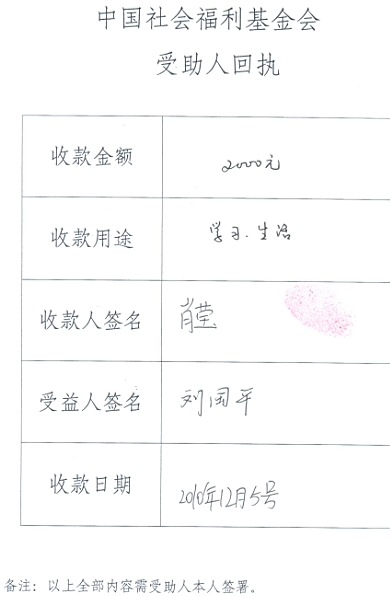 中国社会福利基金会
受助人回执
收款金额 2000元
收款用途 学习.生活
收款人签名 肖莹
受益人签名 刘国平
收款日期 2010年12月5号
备注：以上全部内容需受助人本人签署。